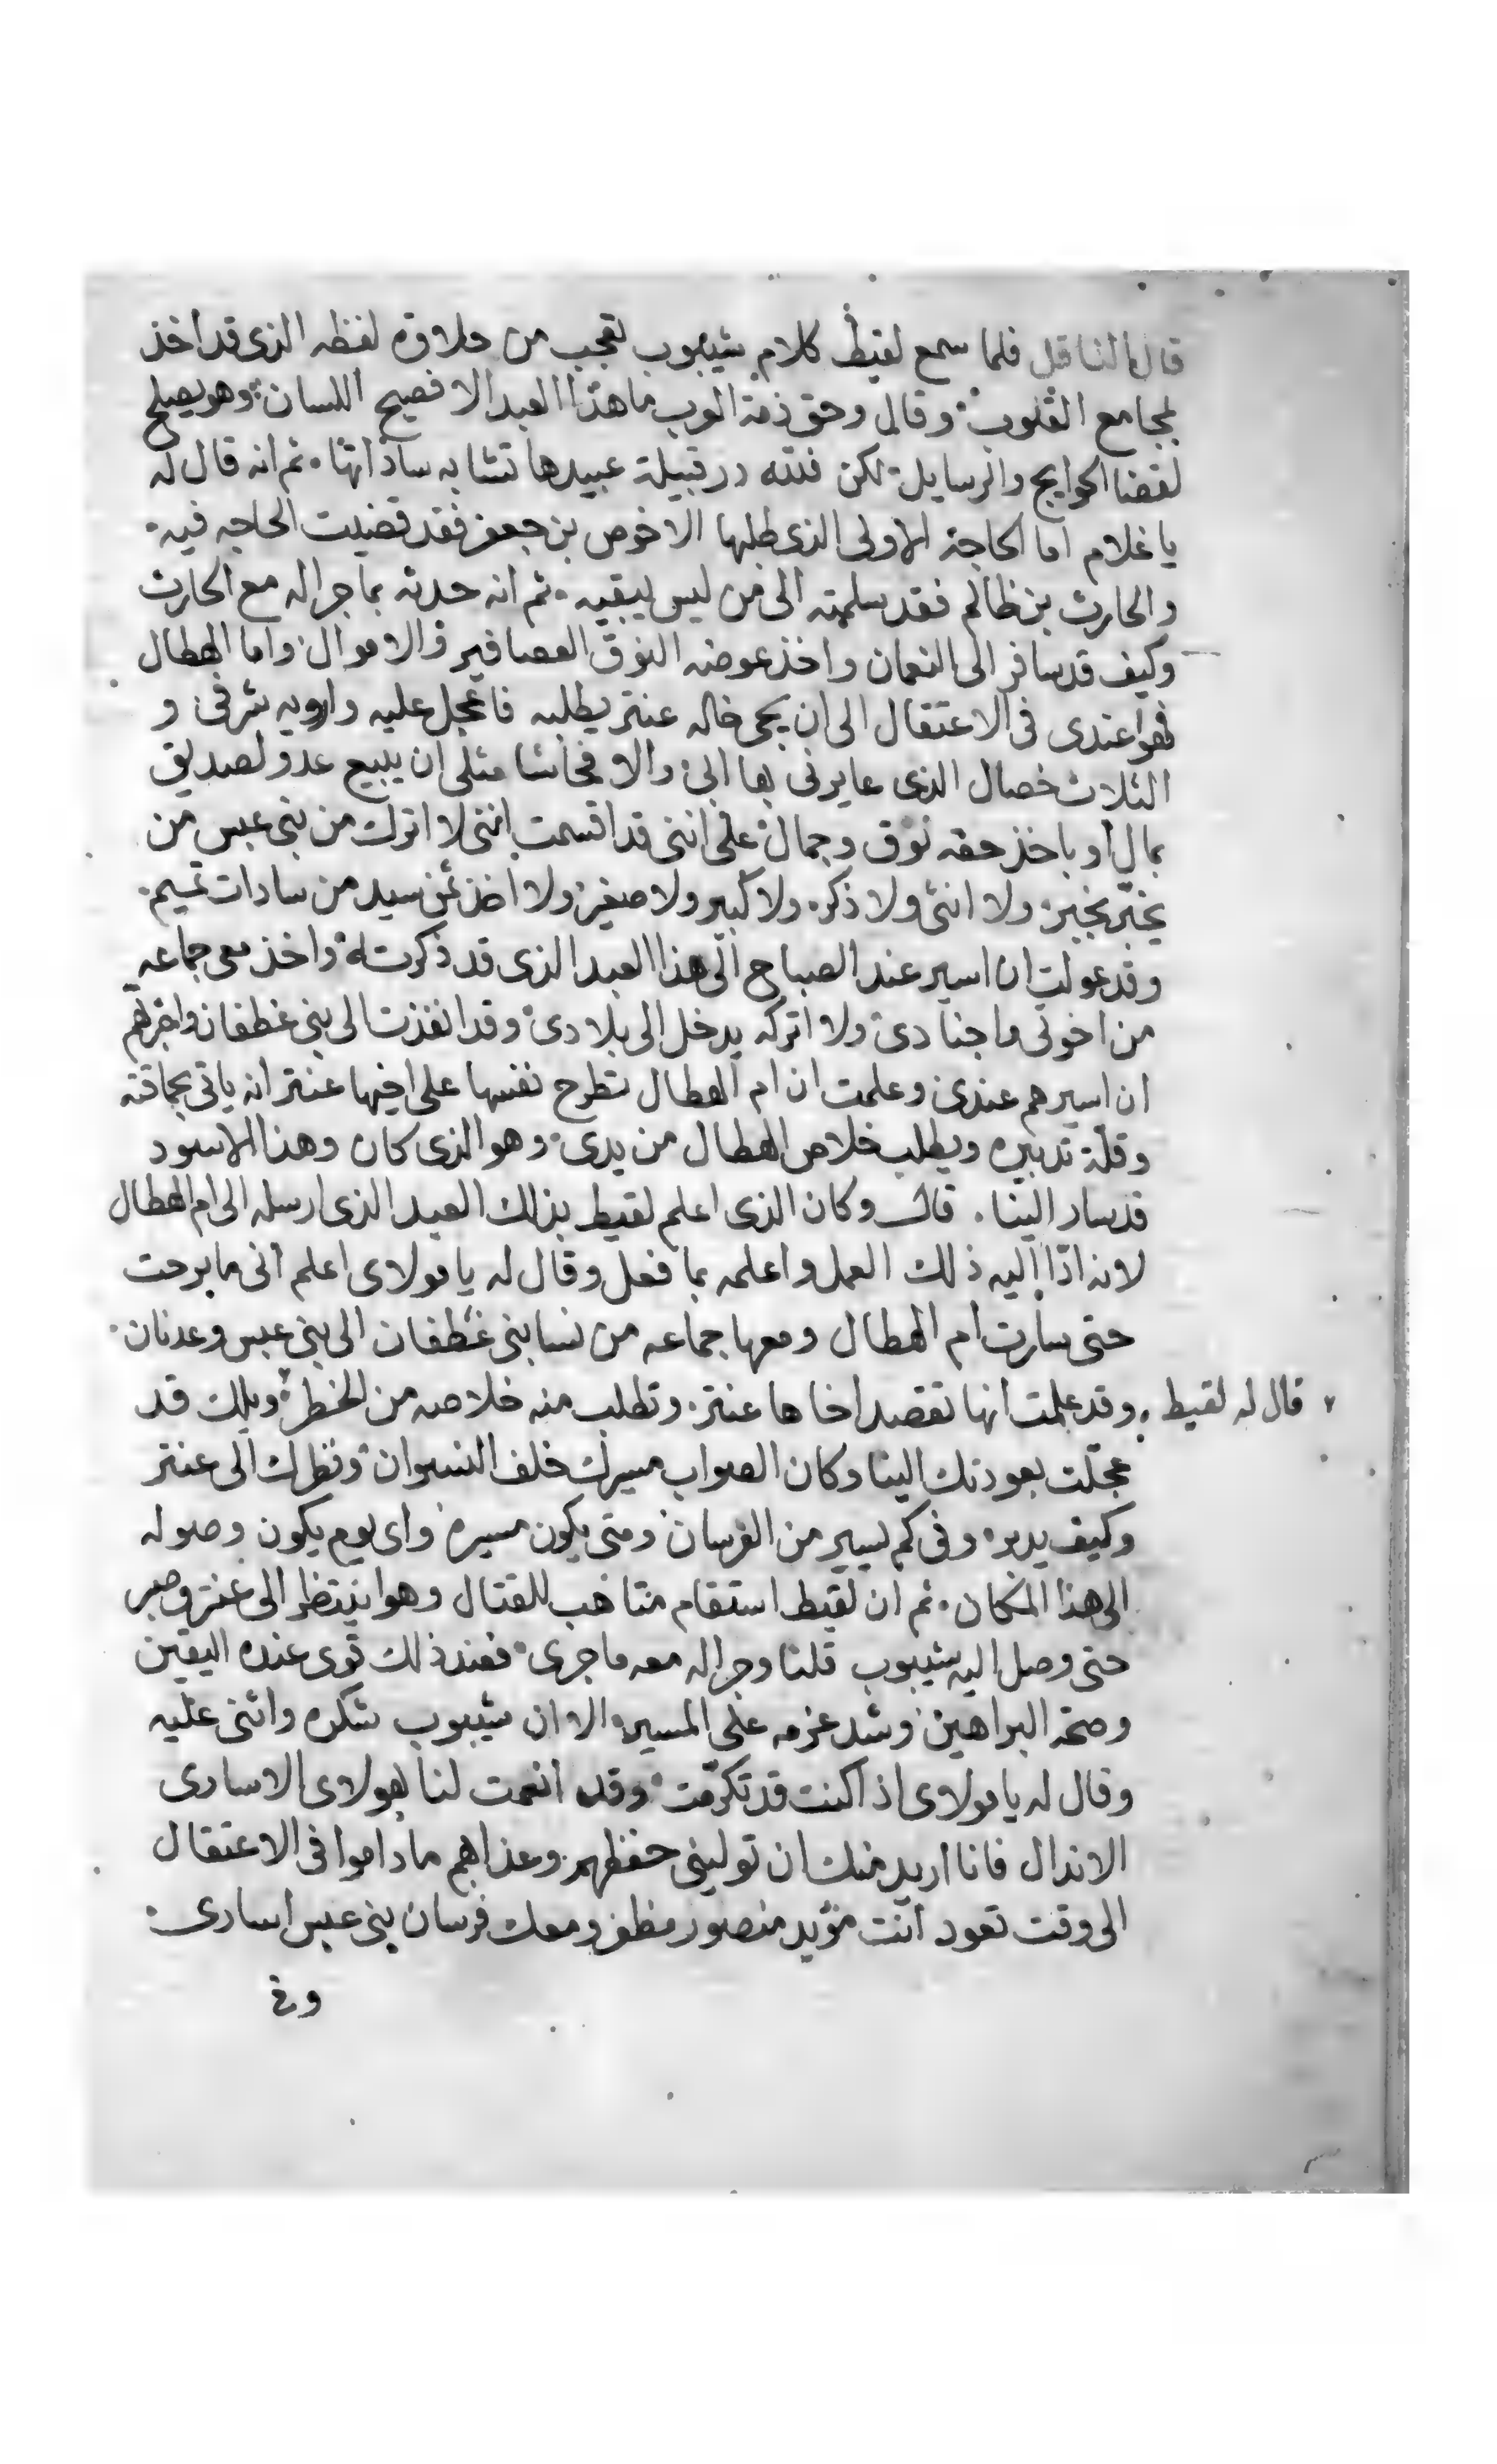 قال الناقل فلما سمع لقيط كلام شيبوب تعجب من حلاوة لفظه الذى قد اخذ
بمجامع القلوب وقال وحق ذمة العرب ما هذا العبد الا فصيح اللسان وهو يصلح
لقضا الحوايج والرسايل لكن فلله در قبيلة عبيدها تتشابه ساداتها ثم انه قال له
يا غلام اما الحاجة الاولى الذى طلبها الاخوص بن جعفر فقد قضيت الحاجه فيه
والحارث بن ظالم فقد سلمته الى من ليس يبقيه ثم انه حدثه بما جرا له مع الحارث
وكيف قد سافر الى النعمان واخذ عوضه النوق العصافير والاموال واما الهطال
فهوا عندى فى الاعتقال الى ان يجى خاله عنتر يطلبه فاعجل عليه واوريه شرفى و
الثلاث خصال الذى عايرنى بها ابى والا فحاشا مثلى ان يبيع عدو لصديق
بمال او ياخذ حقه نوق وجمال على اننى قد اقسمت اننى لا اترك من بنى عبس من
يخبر بخبر ولا انثى ولا ذكر ولا كبير ولا صغير ولا اخذ ثمن سيد من سادات تميم
وقد عولت ان اسير عند الصباح الى هذا العبد الذى قد ذكرت له واخذ معى جماعه
من اخوتى واجنادى ولا اتركه يدخل الى بلادى وقد انفذت الى بنى غطفان واخبرتهم
ان اسيرهم عندى وعلمت ان ام الهطال تطرح نفسها على اخيها عنتر انه ياتى بحماقته
وقلة تدبيره ويطلب خلاص الهطال من يدى وهو الذى كان وهذا الاسود
قد سار الينا قال وكان الذى اعلم لقيط بذلك العبد الذى ارسله الى ام الهطال
لانه ادا اليه ذلك العمل واعلمه بما فعل وقال له يا مولاى اعلم انى ما برحت
حتى سارت ام الهطال ومعها جماعه من نسا بنى غطفان الى بنى عبس وعدنان
قال له لقيط وقد علمت انها تقصد اخاها عنتر وتطلب منه خلاصه من الخطر ويلك قد
عجلت بعودتك الينا وكان الصواب مسيرك خلف النسوان ونظرك الى عنتر
وكيف يدبر وفى كم يسير من الفرسان ومتى يكون مسيره واى يوم يكون وصوله
الى هذا المكان ثم ان لقيط استقام متاهب للقتال وهوا ينتظر الى عنتر وصبر
حتى وصل اليه شيبوب قلنا وجرا له معه ما جرى فعند ذلك قوى عنده اليقين
وصحة البراهين وشد عزمه على المسير الا ان شيبوب شكره واثنى عليه
وقال له يا مولاى اذا كنت قد تكرمت وقد انعمت لنا بهولاى الاسارى
الاندال فانا اريد منك ان تولينى حفظهم وعذابهم ما داموا فى الاعتقال
الى وقت تعود انت مؤيد منصور مظفر ومعك فرسان بنى عبس اسارى
وفى